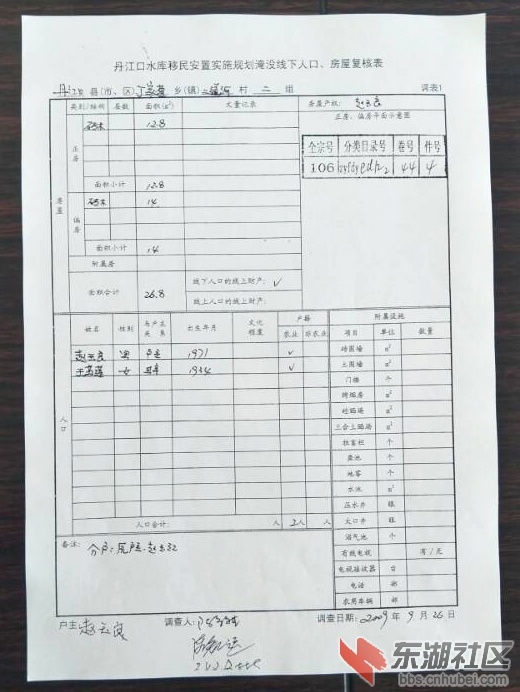 丹江口水库移民安置实施规划淹没线下人口、房屋复核表
丹江口 县(市、区) 乡(镇) 村 二 组 调表1
类别/结构 层数 面积(㎡) 丈量记录 房屋产权: 赵云良
正房、偏房平面示意图
房屋
正房 砖木 12.8
全宗号 分类目录号 卷号 件号
106 44 4
面积小计 12.8
偏房 砖木 14
面积小计 14
附属房
面积合计 26.8 线下人口的线下财产: √
线上人口的线下财产:
人口
姓名 性别 与户主关系 出生年月 文化程度 户籍 农业 非农业
赵云良 男 户主 1971 √
女 1934 √
人口合计: 人 2人 人
附属设施
项目 单位 数量
砖围墙 ㎡
土围墙 ㎡
门楼 个
烤烟房 ㎡
砼晒场 ㎡
三合土晒场 ㎡
牲畜栏 个
粪池 个
地窖 个
水池 ㎡
压水井 眼
大口井 眼
沼气池 个
有线电视 有/无
电视接收器 台
电话 部
农用车辆 部
备注:
户主: 赵云良 调查人: 调查日期: 2009年9月26日
东湖社区
bbs.cnhubei.com